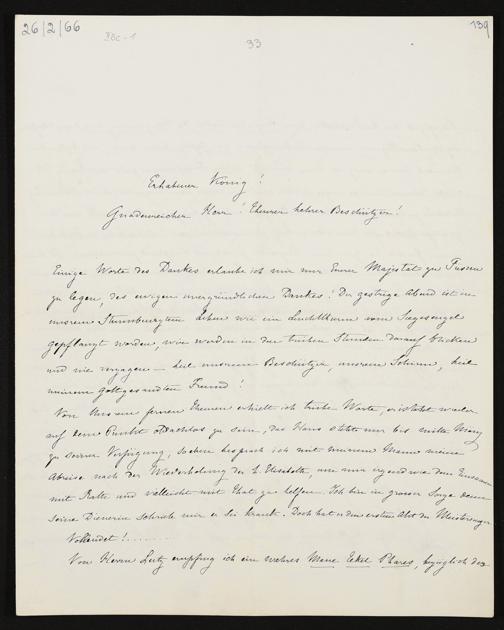 26/2/66
139
33
Erhabener König!
Gnadenreicher Herr! Theurer hehrer Beschützer!
Einige Worte des Dankes erlaube ich mir nur Eurer Majestät zu Füssen
zu legen, des ewigen unergründlichen Dankes! Der gestrige Abend ist in
unserem Leben wie ein Leuchtthurm vom
gepflanzt worden, wir werden in den trüben Stunden darauf blicken
und nie verzagen — heil unserem Beschützer, unserem Schirm, heil
unserem gottgesandten Freund!
Von Unserem fernen Theuren erhielt ich trübe Worte, er ist wieder
auf dem Punkt obdachlos zu sein, das Haus steht nur bis mitte März
zu seiner Verfügung, soeben besprach ich mit meinem Mann meine
Abreise nach der Wiederholung der h. Elisabeth, um nur irgend wie dem Einsamen
mit Rath und vielleicht mit That zu helfen. Ich bin in grosser Sorge denn
seine Dienerin schrieb mir er sei krank. Doch hat er den ersten Akt der Meistersinger
Vollendet!........
Von Herrn Lutz empfing ich ein wahres Mene Tekel Phares, bezüglich des